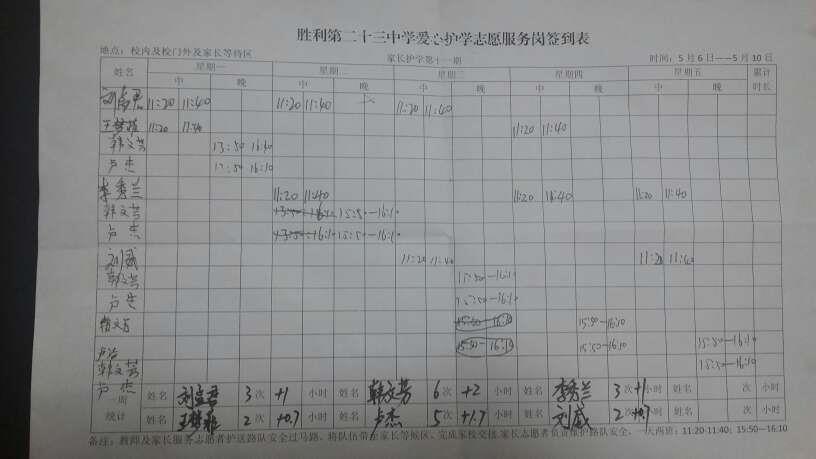 胜利第二十三中学爱心护学志愿服务岗签到表
地点：校内及校门外及家长等待区 家长护学第十一期 时间：5月6日——5月10日
姓名 星期一 星期二 星期三 星期四 星期五 累计时长
中 晚 中 晚 中 晚 中 晚 中 晚
11:20 11:40 11:20 11:40 11:20 11:40
11:20 11:40 11:20 11:40
韩文芳 13:50 16:10
卢杰 16:10
李秀兰 11:20 11:40 11:20 16:40 11:20 11:40
韩文芳 15:50—16:10
卢杰 13:50—16:10 15:50—16:10
刘威 11:20 11:40 11:20 11:40
韩文芳 15:50—16:10
卢杰 15:50—16:10
15:50—16:10 15:50—16:10
15:50—16:10 15:50—16:10 15:50—16:10
韩文芳 15:50—16:10
卢杰
一周统计 姓名 3次 +1 小时 姓名 韩文芳 6次 +2 小时 姓名 李秀兰 3次 +1 小时 姓名 次 小时
姓名 2次 +0.7 小时 姓名 卢杰 5次 +1.7 小时 姓名 刘威 2次 +0.7 小时 姓名 次 小时
备注：教师及家长服务志愿者护送路队安全过马路、将队伍带至家长等候区、完成家校交接.家长志愿者负责维护路队安全、一天两班：11:20-11:40；15:50—16:10